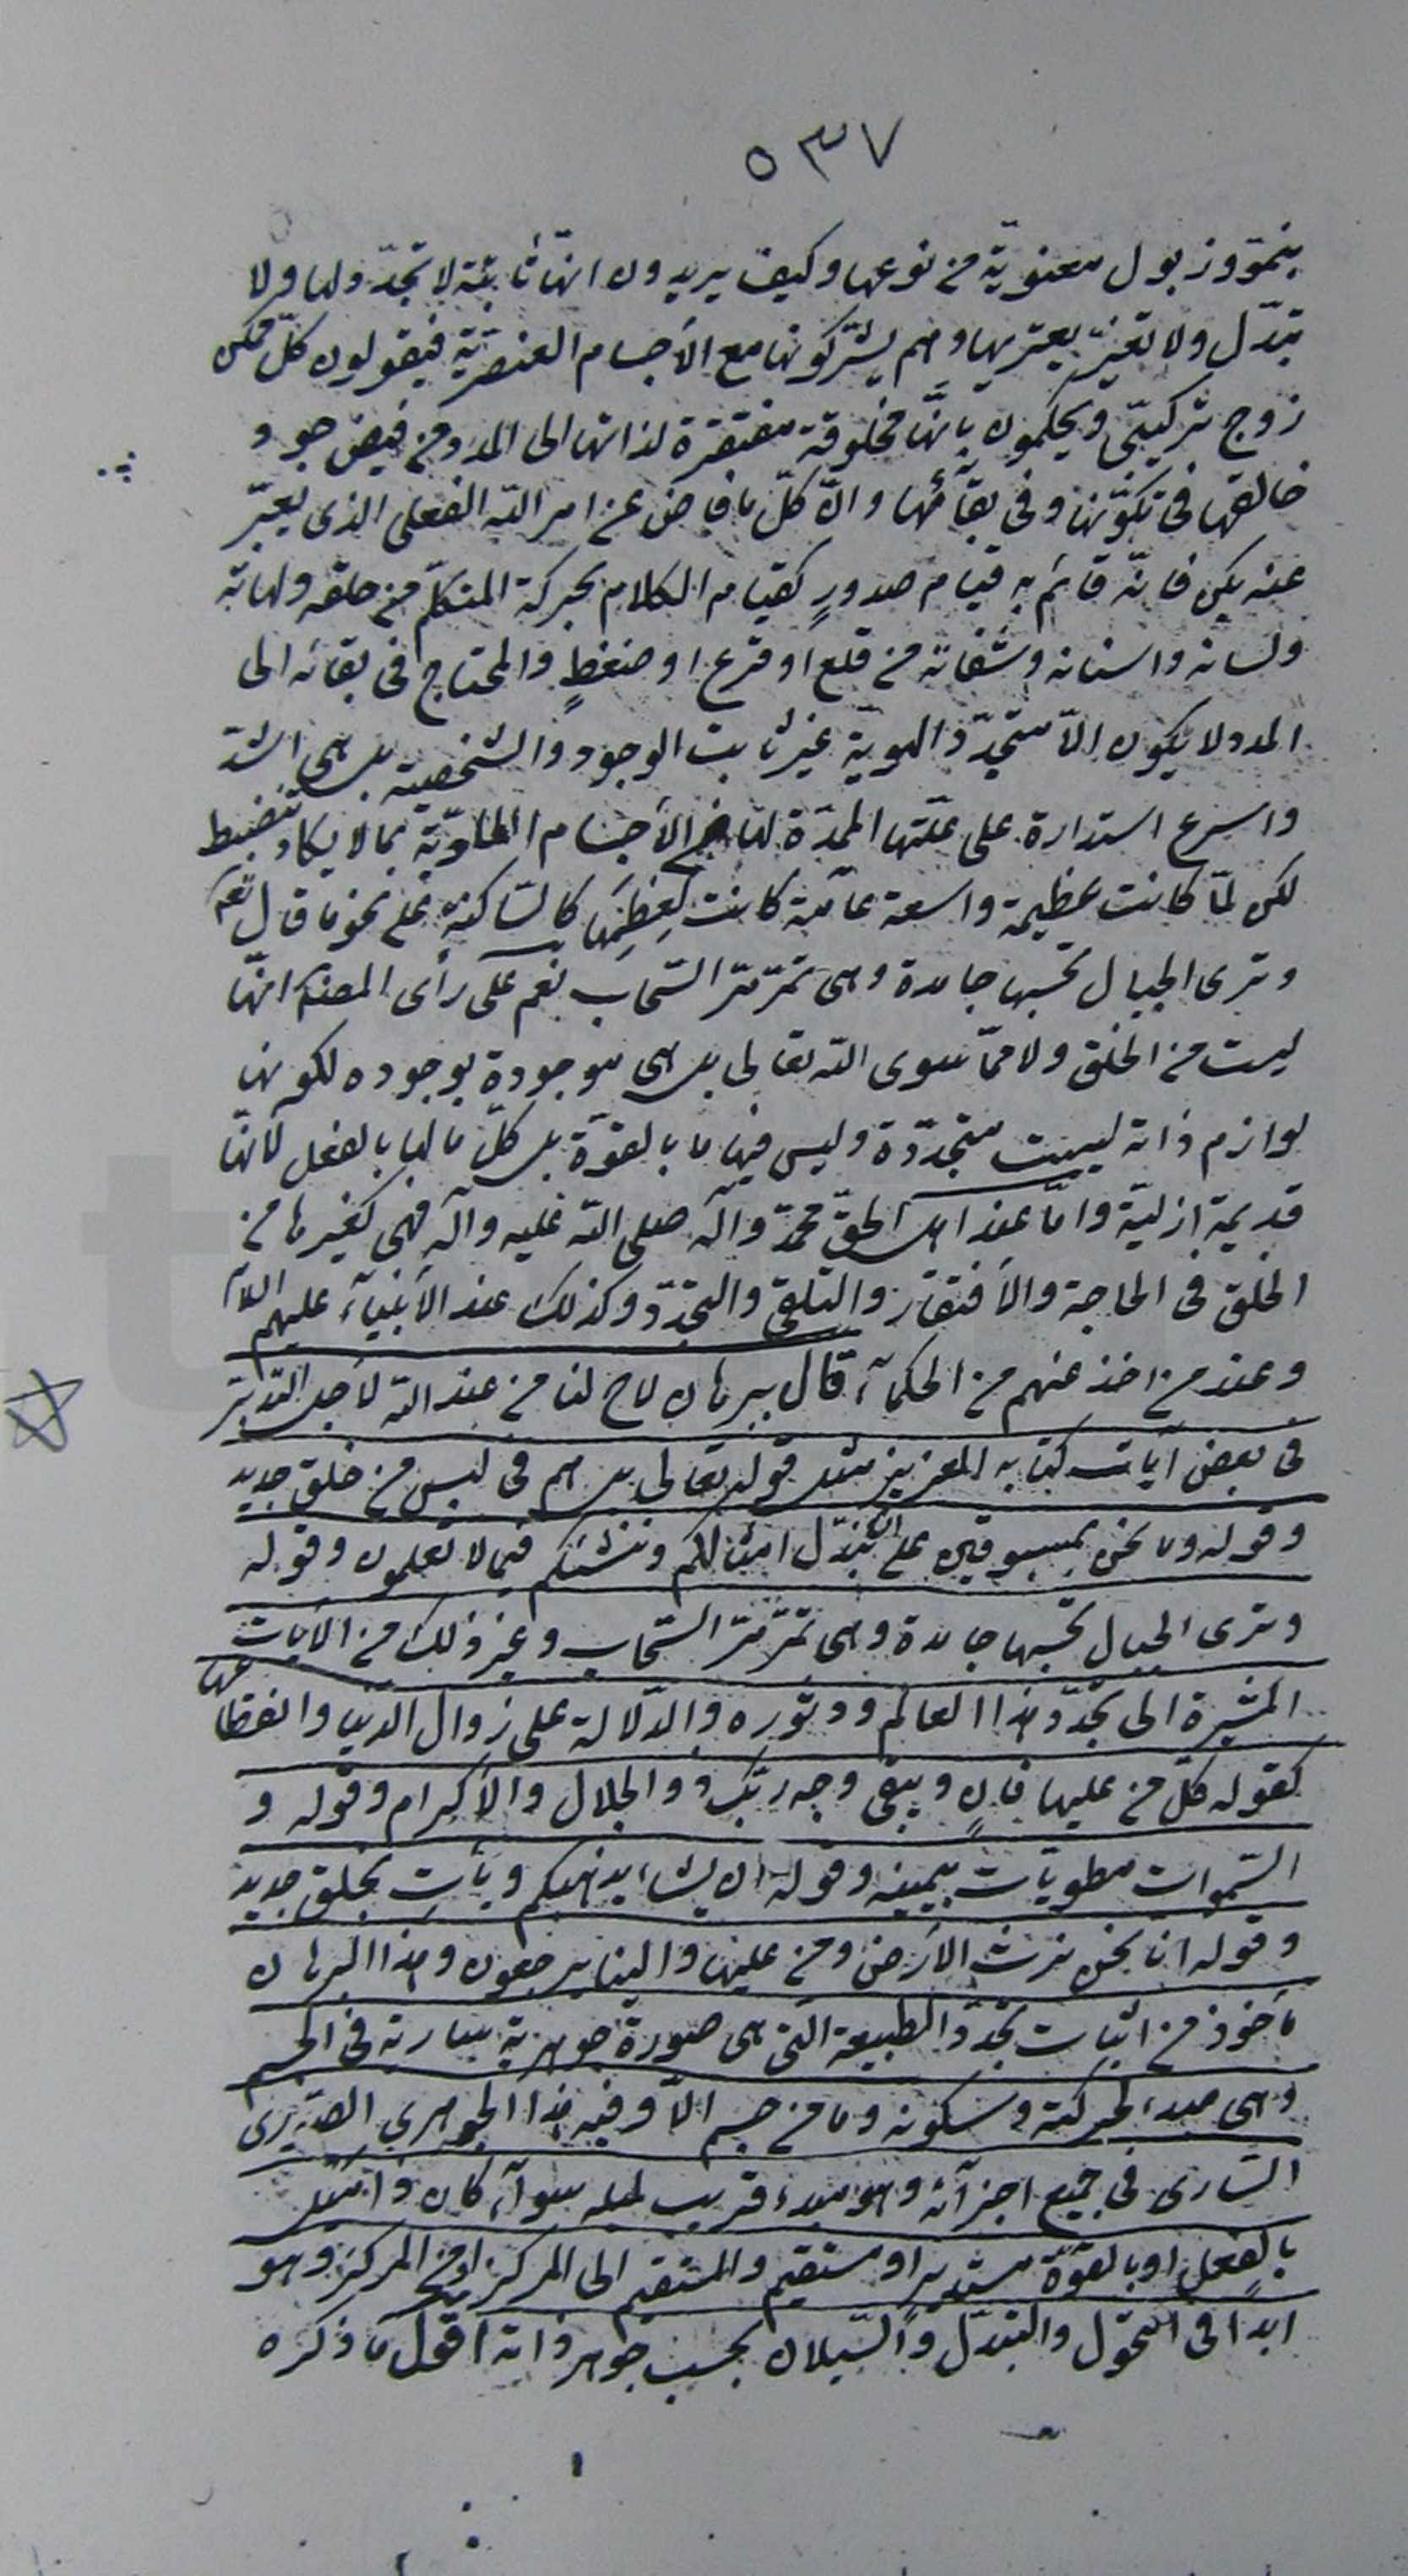 ٥٣٧
بنموّ و زبول معنويّة من نوعها وكيف يريدون انّها ثابتة لا تجدّد لها ولا
تبدّل ولا تغيّر يعتريها وهم يشركونها مع الأجسام العنصريّة فيقولون كلّ ممكن
زوج تركيبّى ويحكمون بانّها مخلوقة مفتقرة لذاتها الى المدد من فيض جود
خالقها فى تكوّنها وفى بقآئها وانّ كلّ ما فاض عن امر اللّه الفعلى الذى يعبّر
عنه بكن فانّه قائم به قيام صدورٍ كقيام الكلام بحركة المتكلّم من حلقه ولهاته
ولسانه واسنانه وشفاته من قلع او قرع او ضغطٍ والمحتاج فى بقائه الى
المدد لا يكون الّا متجدّد الهوية غير ثابت الوجود والشخصية بل هى اشدّ
واسرع استدارة على علّتها الممدّة لها من الأجسام الماديّة بما لا يكاد ينضبط
لكن لمّا كانت عظيمة واسعة عامّة كانت لعِظمِها كالسّاكنة على نحو ما قال تعم
وترى الجبال تحسبها جامدة وهى تمرّ مرّ السّحاب نعم على رأى المصنف انّها
ليست من الخلق ولا ممّا سوى اللّه تعالى بل هى موجودة بوجوده لكونها
لوازم ذاته ليست متجدّدة وليس فيها ما بالقوّة بل كلّ ما لها بالفعل لأنّها
قديمة ازليّة وامّا عند اهل الحقّ محمّد وآله صلى اللّه عليه وآله فهى كغيرها من
الخلق فى الحاجة والأفتقار والتلقى والتجدّد وكذلك عند الأنبيآء عليهم السلام
وعند من اخذ عنهم من الحكمآء قال برهان لاح لنا من عند اللّه لأجل التدبّر
فى بعض آيات كتابه العزيز مثل قوله تعالى بل هم فى لبس من خلق جديد
وقوله وما نحن بمسبوقين على ان نبدّل امثالكم وننشئكم فيما لا تعلمون وقوله
وترى الجبال تحسبها جامدة وهى تمرّ مرّ السّحاب وغير ذلك من الآيات
المشيرة الى تجدّد هذا العالم ودثوره والدّلالة على زوال الدّنيا وانقطاعها
كقوله كلّ من عليها فانٍ ويبقى وجه ربّك ذو الجلال والأكرام وقوله و
السّموات مطويّات بيمينه وقوله ان يشا يذهبكم ويأتِ بخلق جديد
وقوله انا نحن نرث الأرض ومن عليها والينا يرجعون وهذا البرهان
مأخوذ من اثبات تجدّد الطبيعة التى هى صورة جوهرية سارية فى الجسم
وهى مبدء لحركته وسكونه وما من جسم الّا وفيه هذا الجوهرى الصّورى
السّارى فى جميع اجزآئه وهو مبدء قريب لميله سوآء كان وامثل
بالفعل او بالقوّة مستديرا او مستقيم والمستقيم الى المركز او من المركز وهو
ابدا فى التحوّل والتبدّل والسّيلان بحسب جوهر ذاته اقول ما ذكره